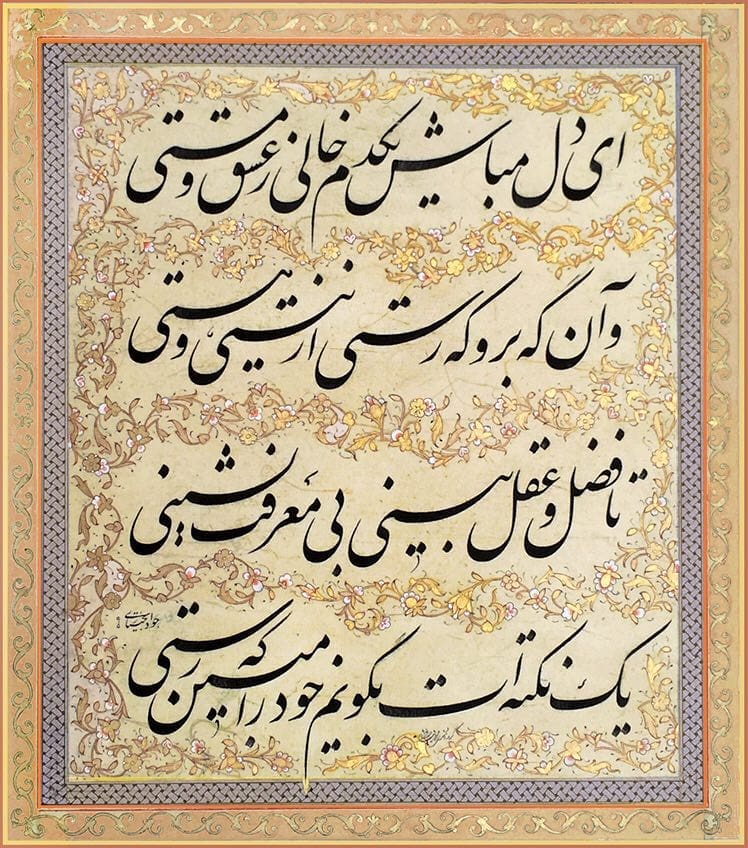 ای دل مباش یکدم خالی ز عشق و مستی
وآن گه برو که رستی از نیستی و هستی
تا فضل و عقل بینی بی معرفت نشینی
یک نکته ات بگویم خود را مبین که رستی
جواد بختیاری